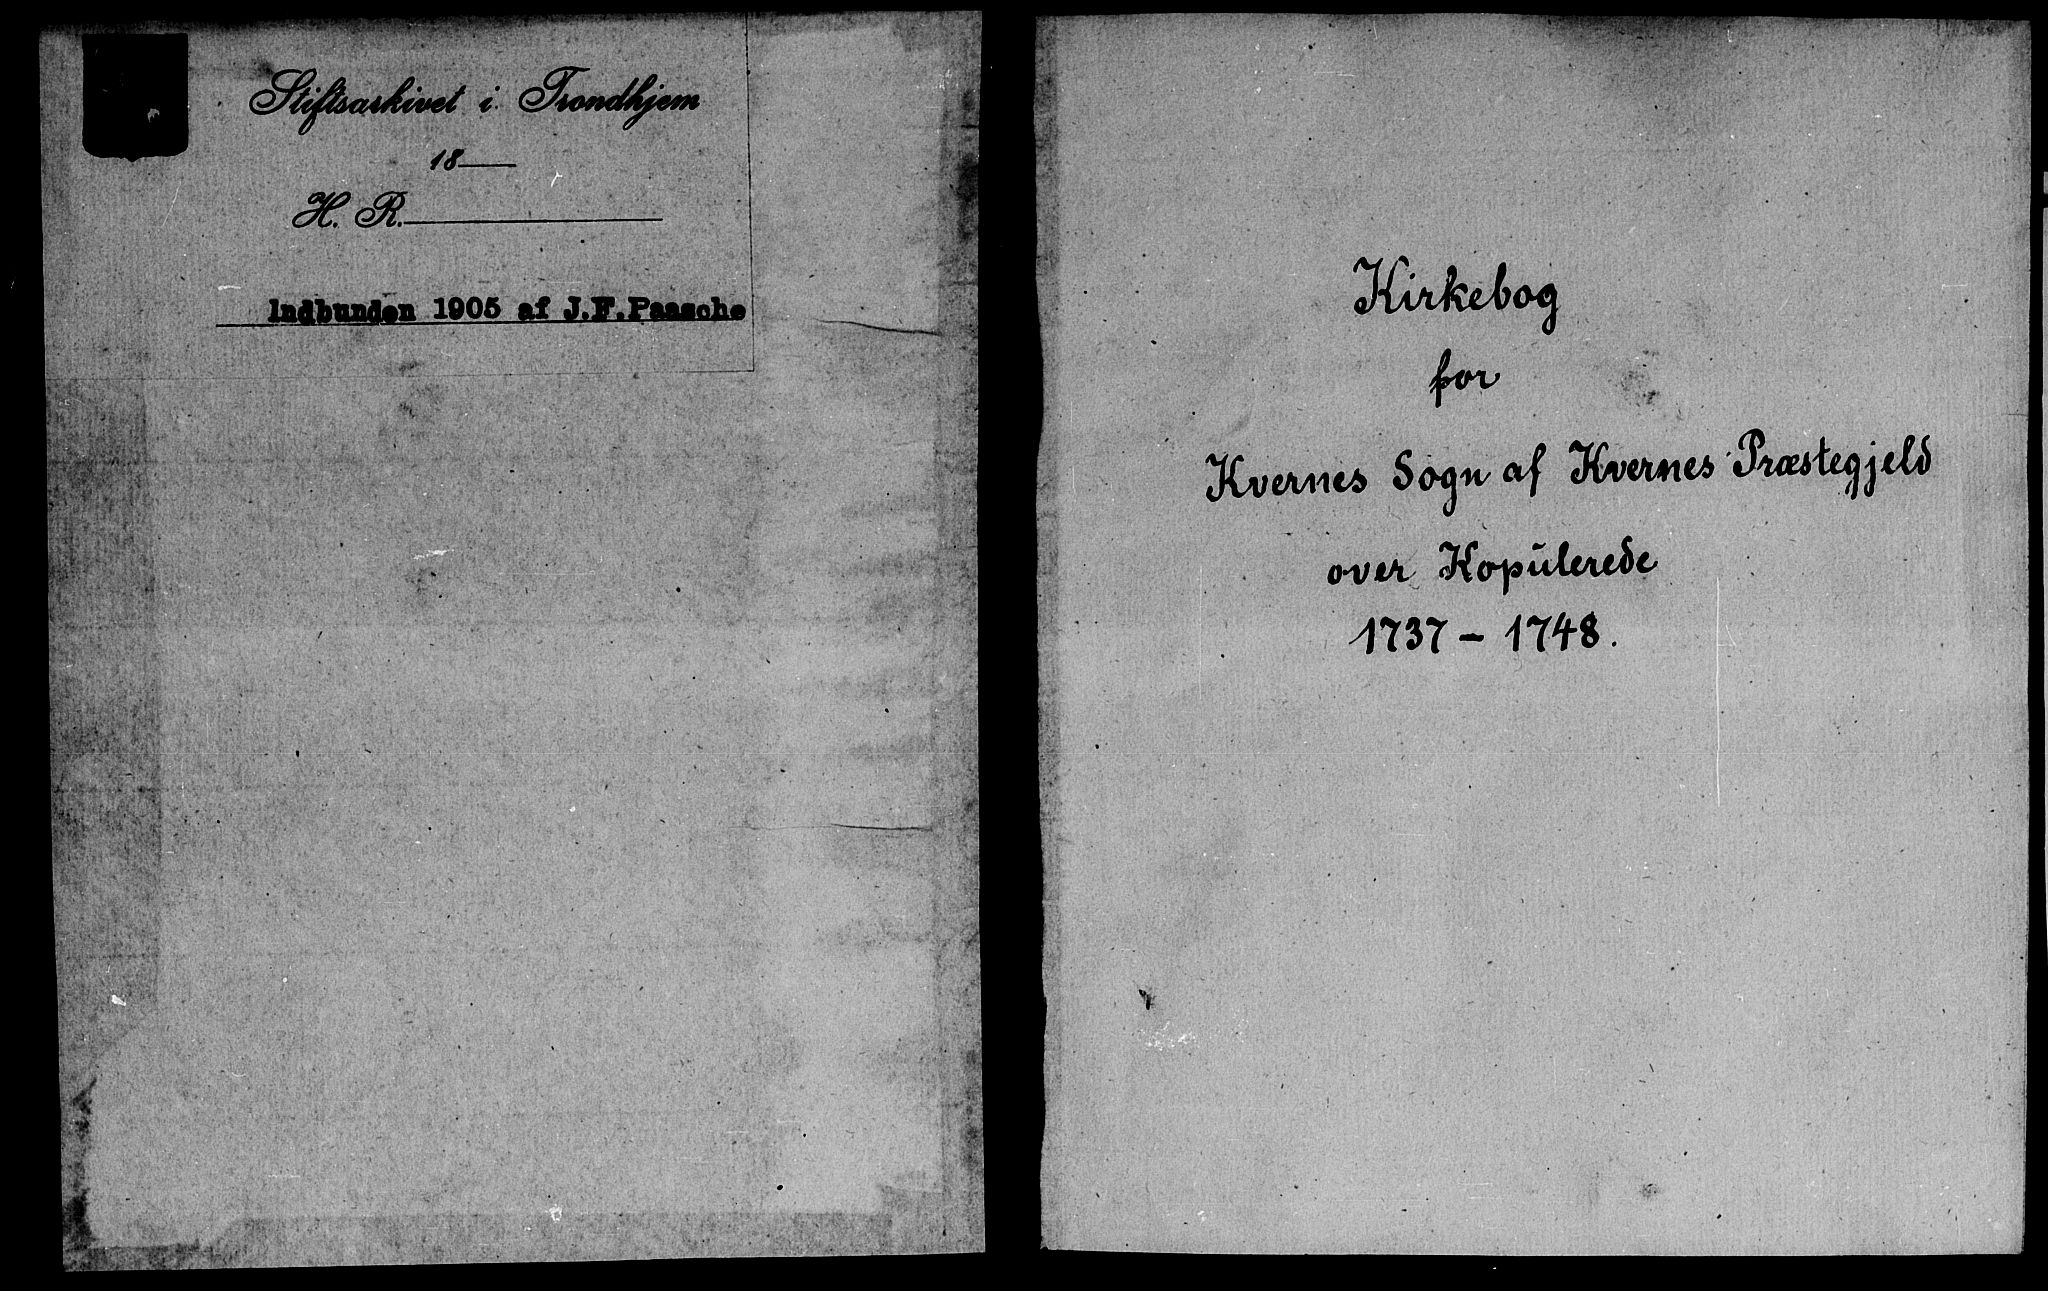 Stiftsarkivet i Trondhjem
18
H. R.
Indbunden 1905 af J.F.Paasche
Kirkebog
for
Kvernes Sogn af Kvernes Præstegjeld
over Kopulerede
1737 - 1748.